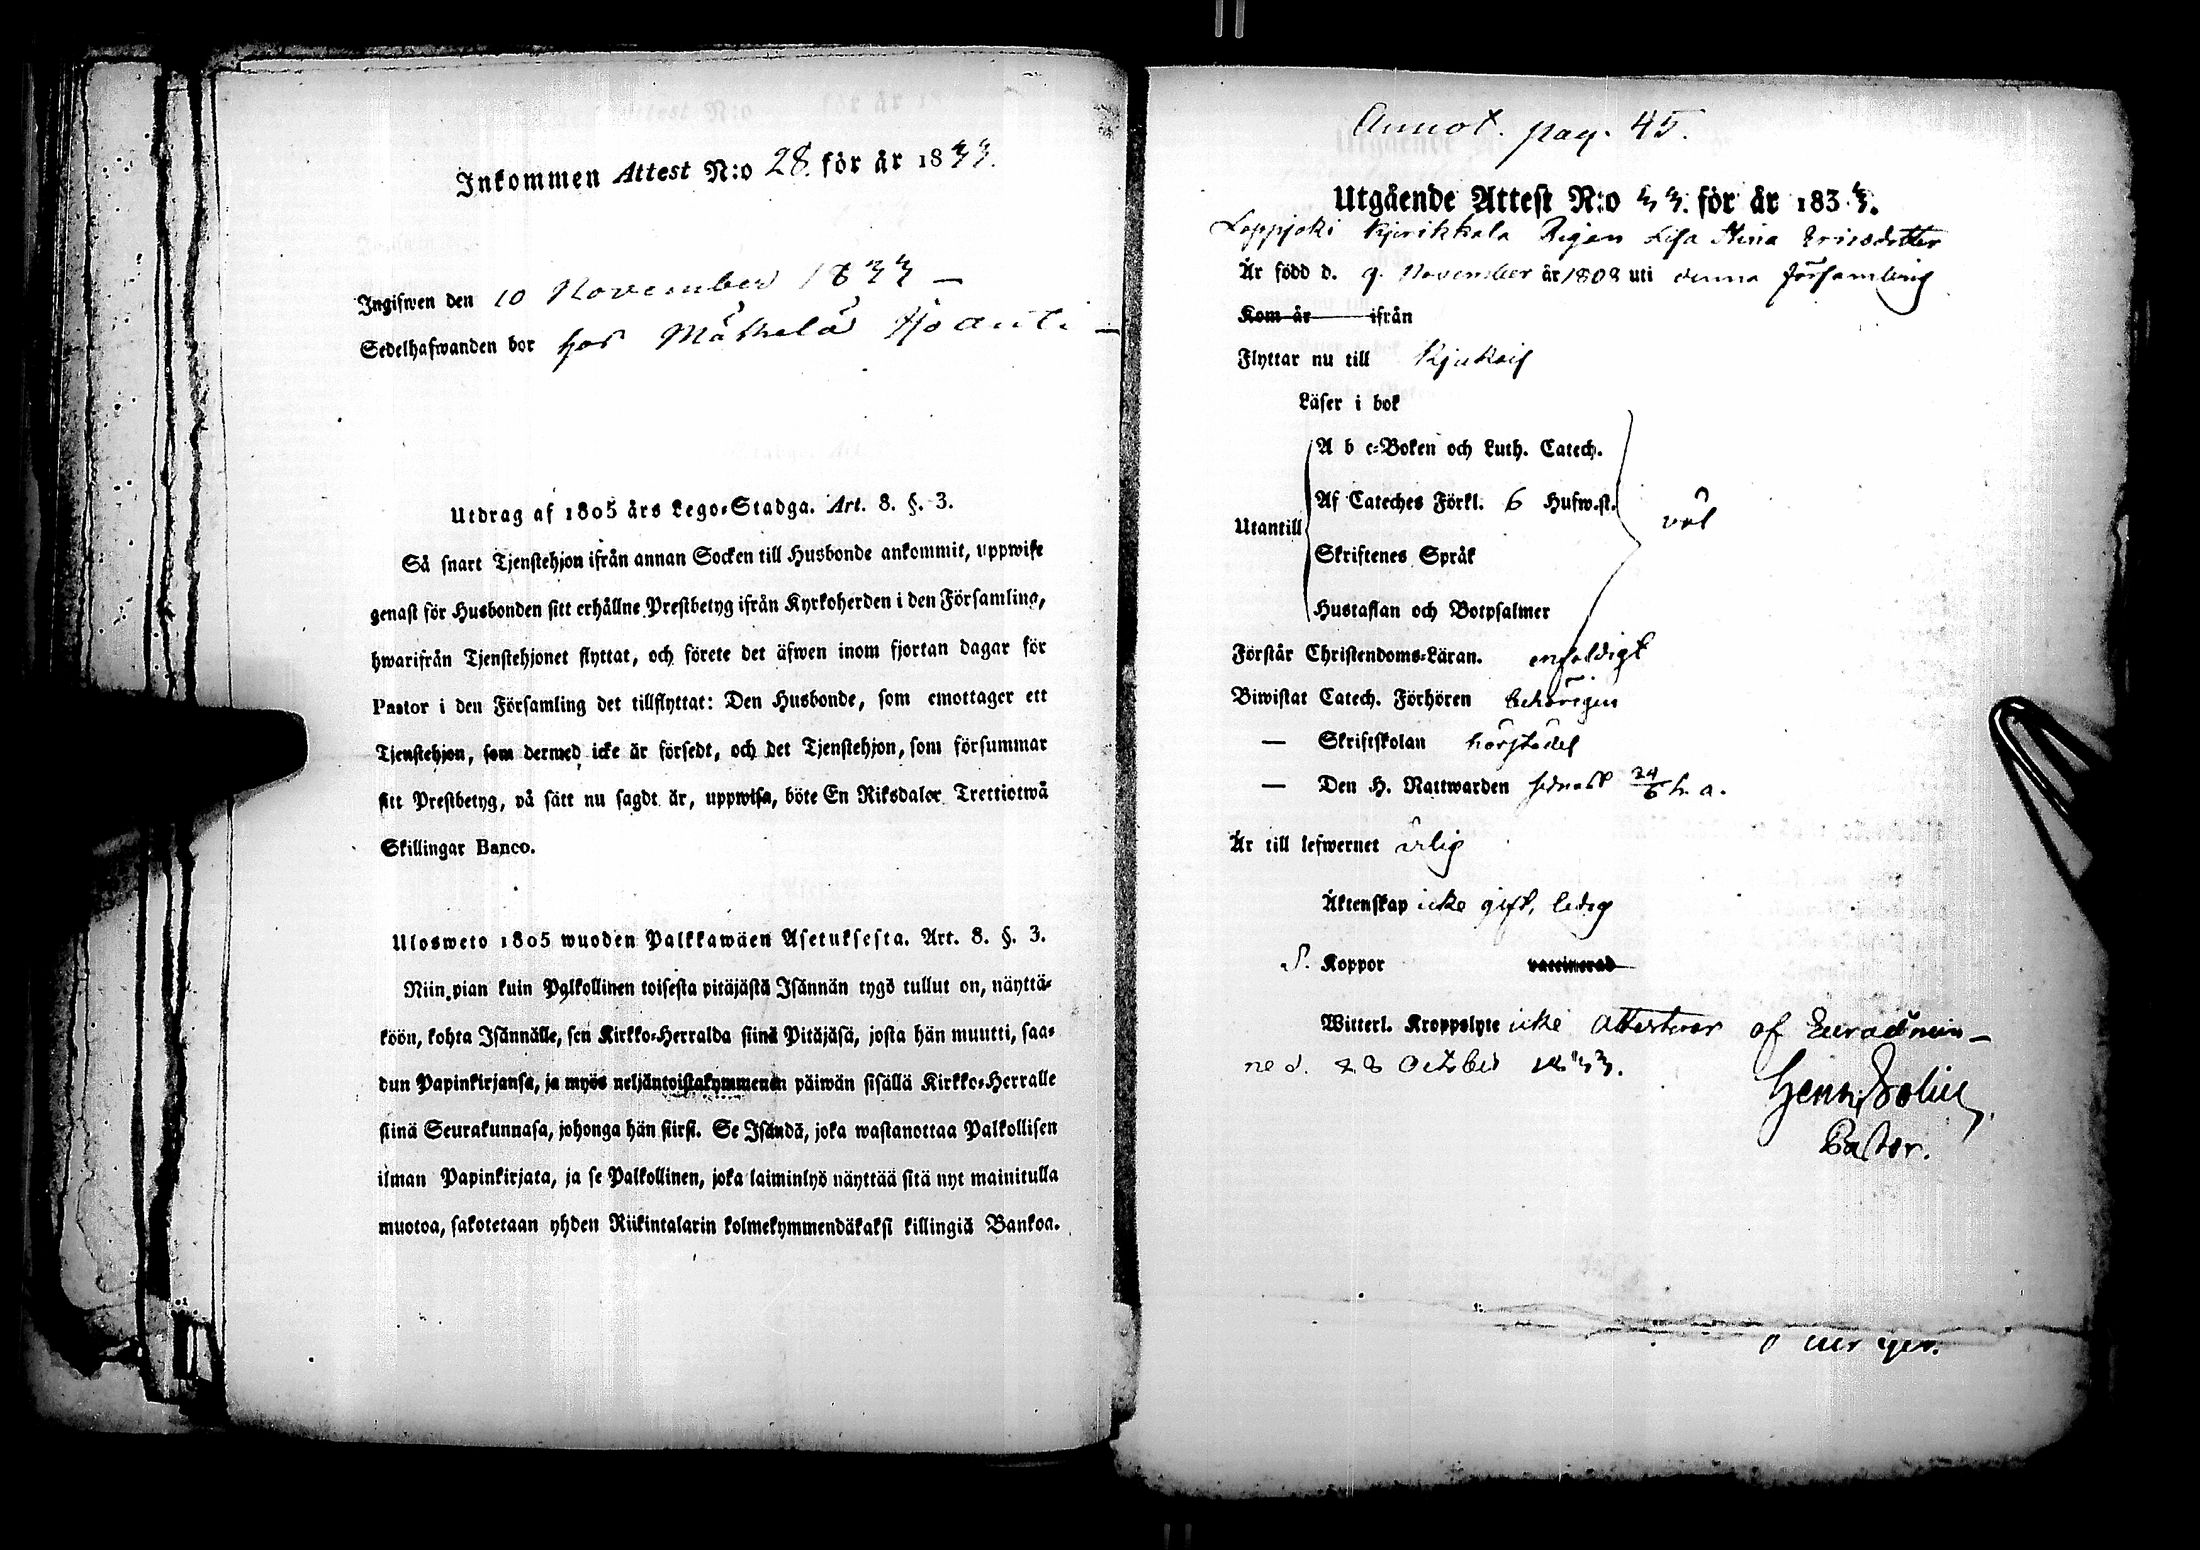 Inkommen Attest N:o 28. för år 1833.
Ingifwen den 10 November 1833 —
Sedelhafwanden bor hos Mäkelä
Utdrag af 1805 års Lego-Stadga. Art. 8. §. 3.
Så snart Tjenstehjon ifrån annan Socken till Husbonde ankommit, uppwise
genast för Husbonden sitt erhållne Prestbetyg ifrån Kyrkoherden i den Församling,
hwarifrån Tjenstehjonet flyttat, och förete det äfwen inom fjortan dagar för
Pastor i den Församling det tillflyttat: Den Husbonde, som emottager ett
Tjenstehjon, som dermed icke är försedt, och det Tjenstehjon, som försummar
sitt Prestbetyg, på sätt nu sagdt är, uppwisa, böte En Riksdaler Trettiotwå
Skillingar Banco.
Ulosweto 1805 wuoden Palkkawäen Asetuksesta. Art. 8. §. 3.
Niin pian kuin Palkollinen toisesta pitäjästä Isännän tygö tullut on, näyttä-
köön, kohta Isännälle, sen Kirkko-Herralda siinä Pitäjäsä, josta hän muutti, saa-
dun Papinkirjansa, ja myös neljäntoistakymmenen päiwän sisällä Kirkko-Herralle
siinä Seurakunnasa, johonga hän siirsi. Se Isändä, joka wastanottaa Palkollisen
ilman Papinkirjata, ja se Palkollinen, joka laiminlyö näyttää sitä nyt mainitulla
muotoa, sakotetaan yhden Riikintalarin kolmekymmendäkaksi killingiä Bankoa.
Annot. pag. 45.
Utgående Attest N:o 33. för år 1833.
Loppjoki Kjerikkala Pigan Lisa Stina Ericsdotter
Är född d. 9. November år 1808 uti denna församling
Kom år ifrån
Flyttar nu till Kjukois
Läser i bok
A b c-Boken och Luth. Catech.
Af Cateches Förkl. 6 Hufw.st.
Utantill väl
Skriftenes Språk
Hustaflan och Botpsalmer
Förstår Christendoms-Läran. enfaldigt
Biwistat Catech. Förhören behörigen
— Skriftskolan
— Den H. Nattwarden sednast 24/6 h. a.
Är till lefwernet ärlig
Äktenskap icke gift, ledig
Koppor vaccinerad
Witterl. Kroppslyte icke Attesterar af Euraåmin-
ne d. 28 October 1833.
Pastor.